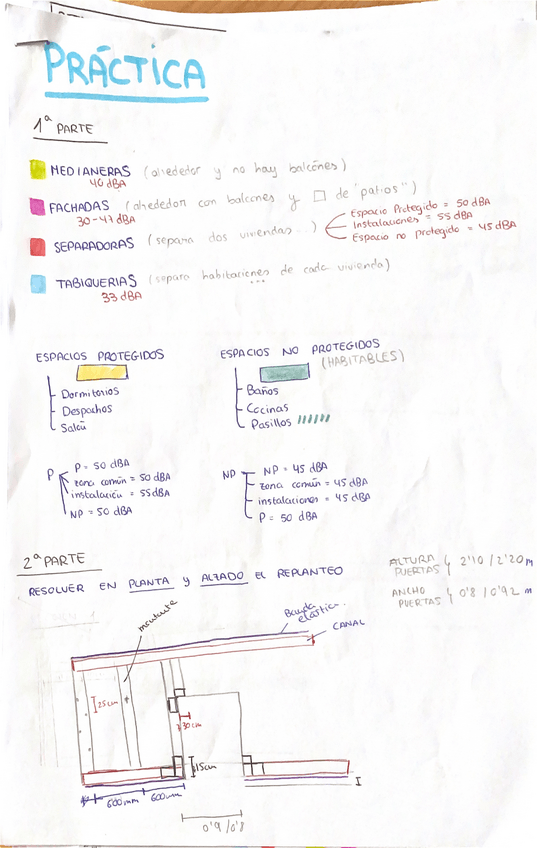 PRÁCTICA
1ª PARTE
MEDIANERAS (alrededor y no hay balcones)
40 dBA
FACHADAS (alrededor con balcones y □ de "patios")
30-47 dBA
SEPARADORAS (separa dos viviendas...)
Espacio Protegido = 50 dBA
Instalaciones = 55 dBA
Espacio no protegido = 45 dBA
TABIQUERIAS (separa habitaciones de cada vivienda)
33 dBA
...
ESPACIOS PROTEGIDOS
Dormitorios
Despachos
Salón
ESPACIOS NO PROTEGIDOS
(HABITABLES)
Baños
Cocinas
Pasillos
P
P = 50 dBA
zona común = 50 dBA
instalación = 55 dBA
NP = 50 dBA
NP
NP = 45 dBA
zona común = 45 dBA
instalaciones = 45 dBA
P = 50 dBA
2ª PARTE
RESOLVER EN PLANTA y ALZADO EL REPLANTEO
ALTURA PUERTAS 2'10 / 2'20 m
ANCHO PUERTAS 0'8 / 0'92 m
montante
Banda elástica.
CANAL
25cm
30cm
15cm
600mm
600mm
0'9 / 0'8